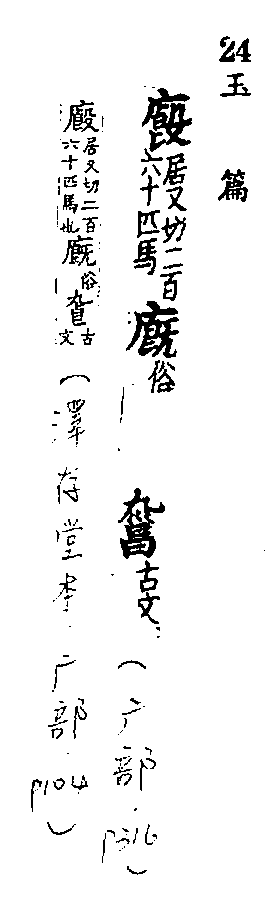 24玉篇
廏居又切二百六十匹馬廐俗𠷎古文(广部.P316)
廏居又切二百六十匹馬也廐俗古文(澤存堂本.广部.P104)